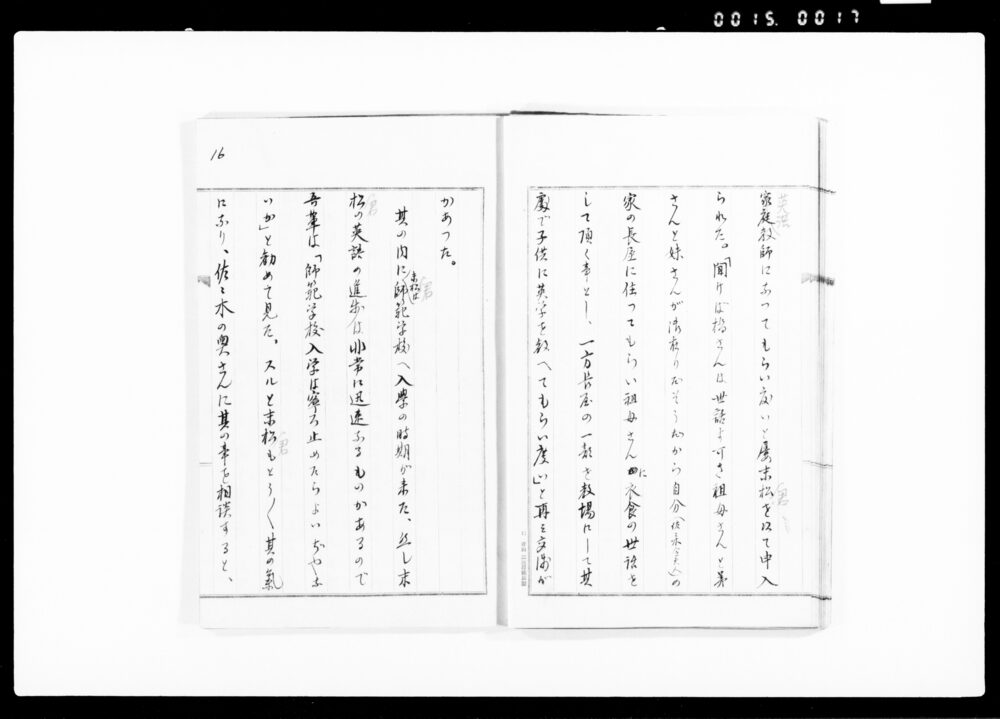 0015. 0017
家庭教師になつてもらい度いと屡末松を以て申入
られた。「聞けば橋さんは世話す可き祖母さんと弟
さんと妹さんが御座りなさうだから自分(佐々木夫人)の
家の長屋に住つてもらい祖母さんに衣食の世話を
して頂く事とし、一方長屋の一部を教場にして其
處で子供に英学を教へてもらい度い」と再三交渉が
16
かあつた。
其の内に師範学校へ入學の時期が来た、然し末
末松は
松の英語の進歩は非常に迅速なるものがあるので
吾輩は「師範学校入学は寧ろ止めたらよいぢやな
いか」と勧めて見た。スルと末松もとう〱其の氣
になり、佐々木の奥さんに其の事を相談すると、